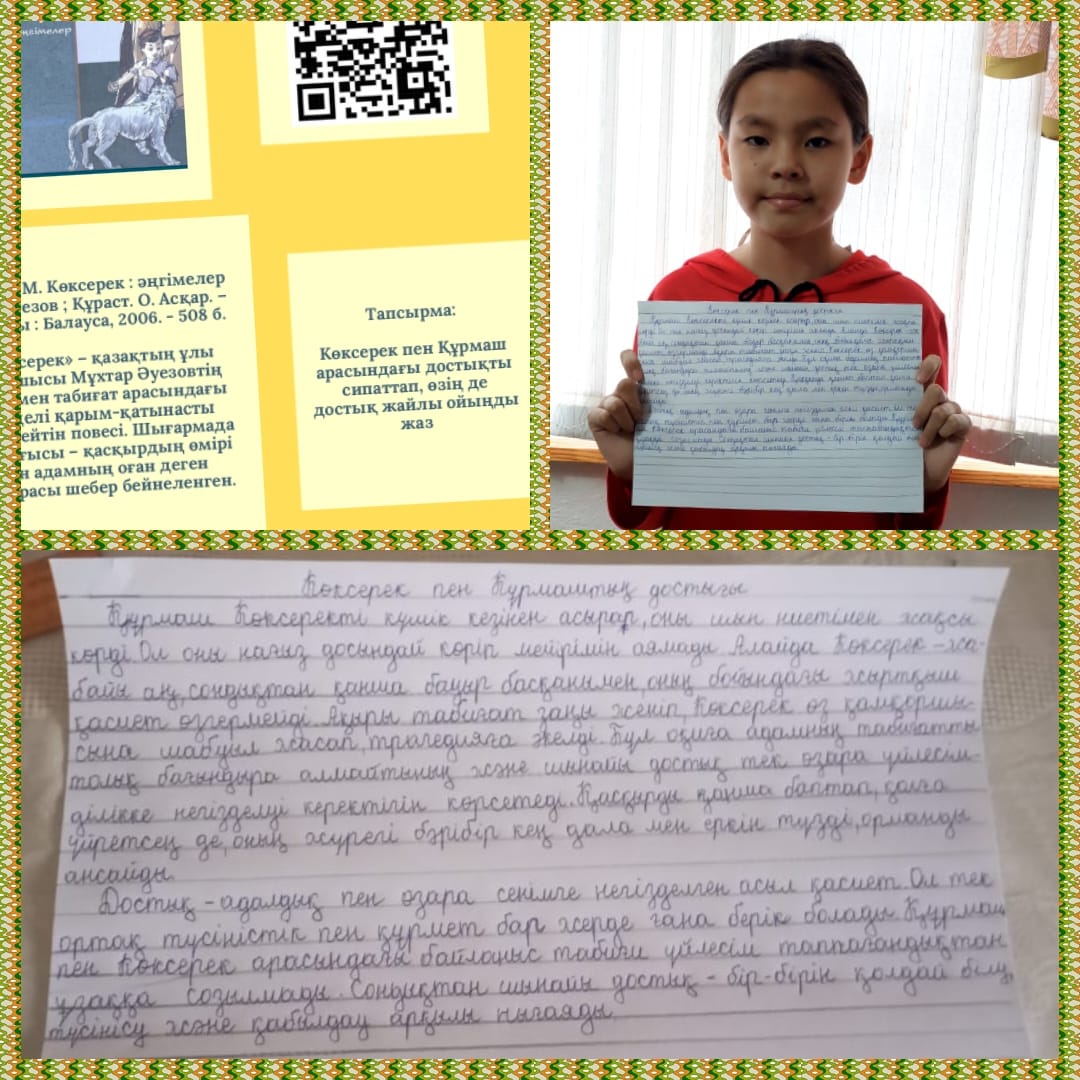 әңгімелер
М. Көксерек : әңгімелер
езов ; Құраст. О. Асқар. –
ы : Балауса, 2006. - 508 б.
серек» – қазақтың ұлы
шысы Мұхтар Әуезовтің
мен табиғат арасындағы
делі қарым-қатынасты
ейтін повесі. Шығармада
тысы – қасқырдың өмірі
н адамның оған деген
расы шебер бейнеленген.
Тапсырма:
Көксерек пен Құрмаш
арасындағы достықты
сипаттап, өзің де
достық жайлы ойыңды
жаз
Көксерек пен Құрмаштың достығы
Құрмаш Көксеректі күшік кезінен асырар, оны шын ниетімен жақсы
көрді. Ол оны нағыз досындай көріп мейірімін аямады. Алайда Көксерек – жа-
байы аң, сондықтан қанша бауыр басқанымен, оның бойындағы жыртқыш
қасиет өзгермейді. Ақыры табиғат заңы жеңіп, Көксерек өз қамқоршы-
сына шабуыл жасап, трагедияға әкелді. Бұл оқиға адамның табиғатты
толық бағындыра алмайтының және шынайы достық тек өзара үйлесім-
ділікке негізделуі керектігін көрсетеді. Қасқырды қанша баптап, қолға
үйретсең де, оның жүрегі бәрібір кең дала мен еркін түзді, орманды
аңсайды.
Достық – адалдық пен өзара сенімге негізделген асыл қасиет. Ол тек
ортақ түсіністік пен құрмет бар жерде ғана берік болады. Құрмаш
пен Көксерек арасындағы байланыс табиғи үйлесім таппағандықтан
ұзаққа созылмады. Сондықтан шынайы достық - бір-бірін қолдай білу,
түсінісу және қабылдау арқылы нығаяды.